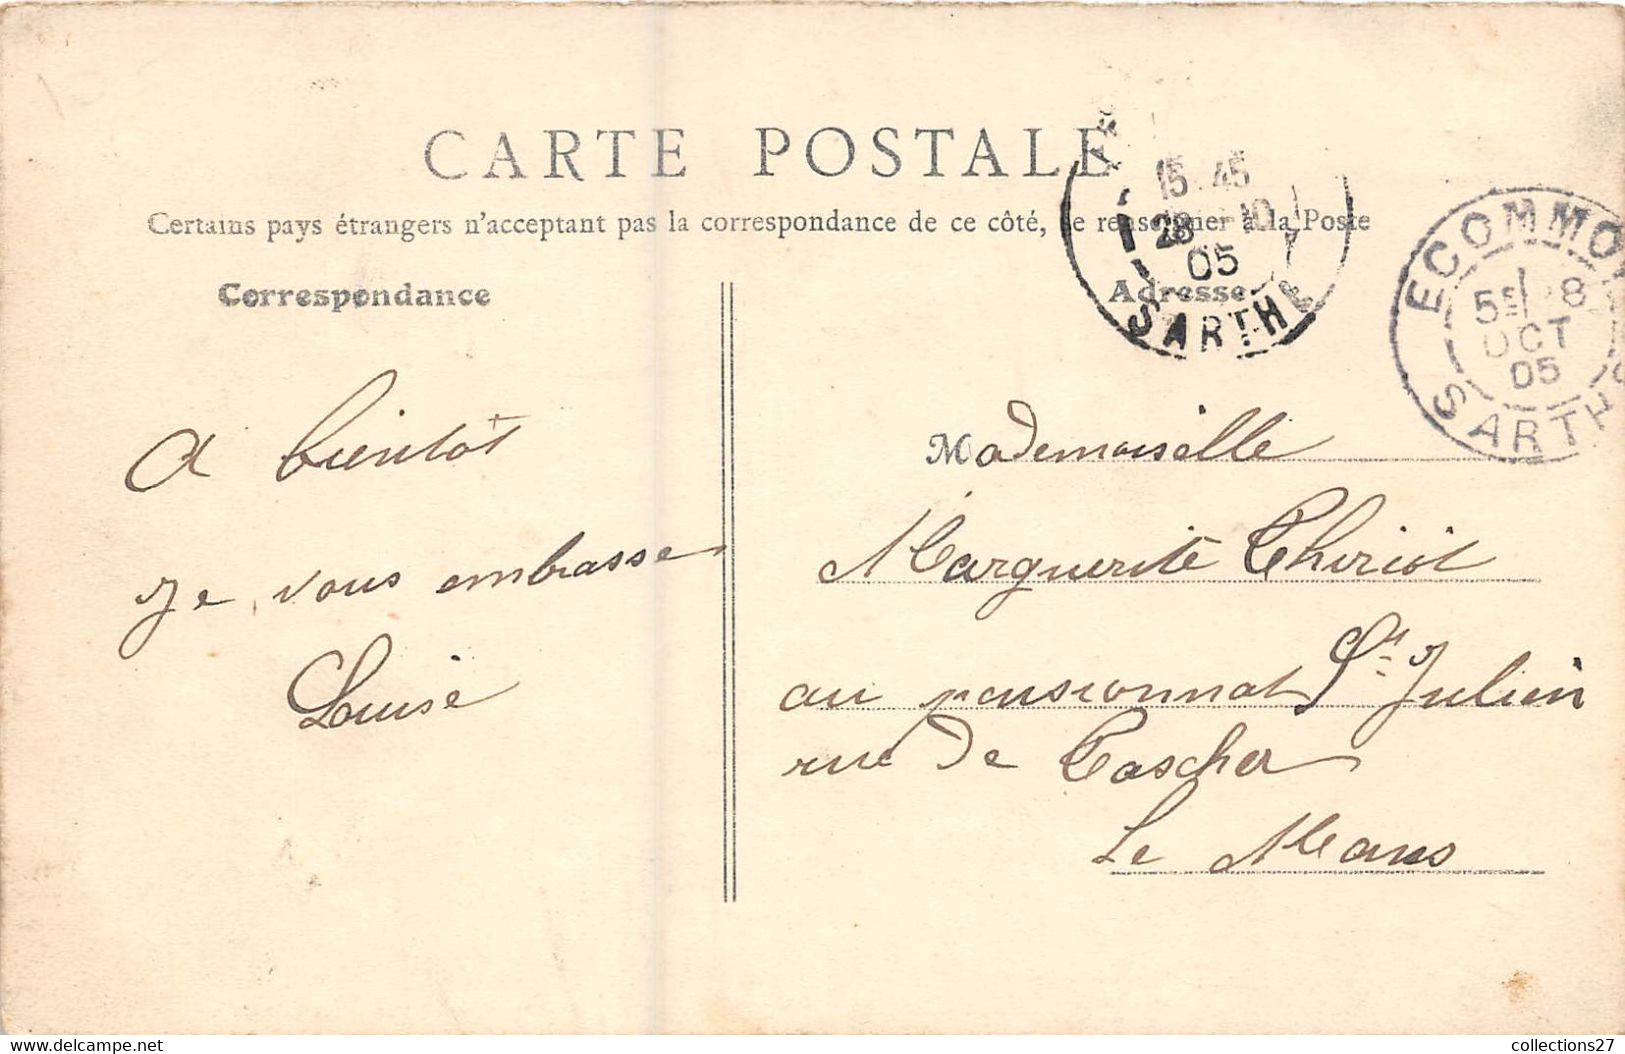 CARTE POSTALE
Certains pays étrangers n'acceptant pas la correspondance de ce côté, se renseigner à la Poste
Correspondance
Adresse
15 45
28 10
05
SARTHE
ECOMMO
5E 28
OCT
05
SARTHE
A bientôt
Je vous embrasse
Louise
Mademoiselle
Marguerite Thiriot
au pensionnat St Julien
rue de Tascher
Le Mans
delcampe.net
collections27